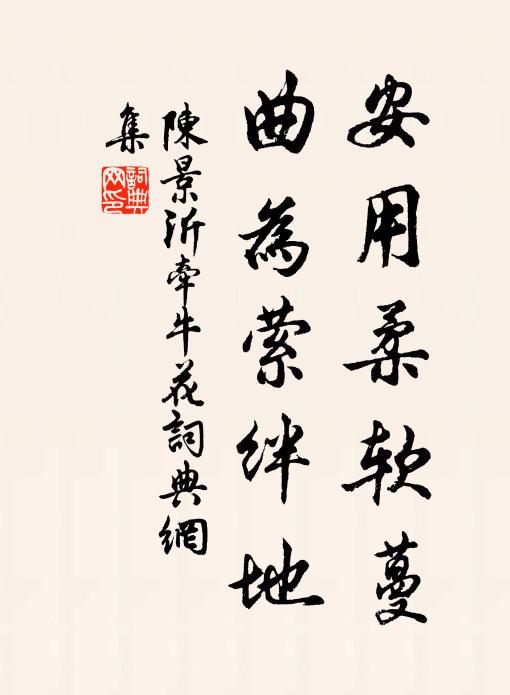 安用柔软蔓
曲為縈絆地
陳景沂牽牛花詞典網
集
詞典
网印